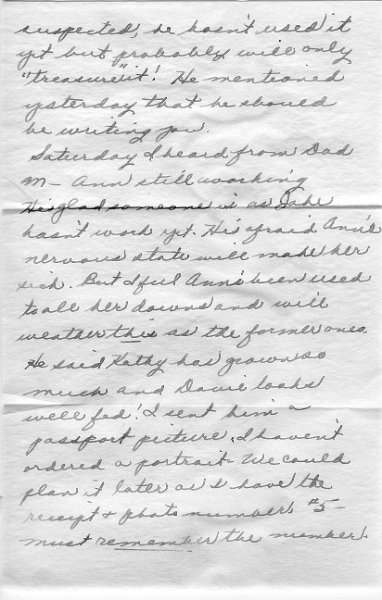 suspected, he hasn't used it
yet but probably will only
"treasure" it! He mentioned
yesterday that he should
be writing you.
Saturday I heard from Dad
M- Ann still working
He's glad someone is as Jake
hasn't work yet. He's afraid Ann's
nervous state will make her
sick. But I feel Ann's been used
to all her downs and will
weather this as the former ones.
He said Kathy has grown so
much and David looks
well fed! I sent him a
passport picture. I haven't
ordered a portrait - We could
plan it later as I have the
receipt & photo number. #5-
must remember the number.